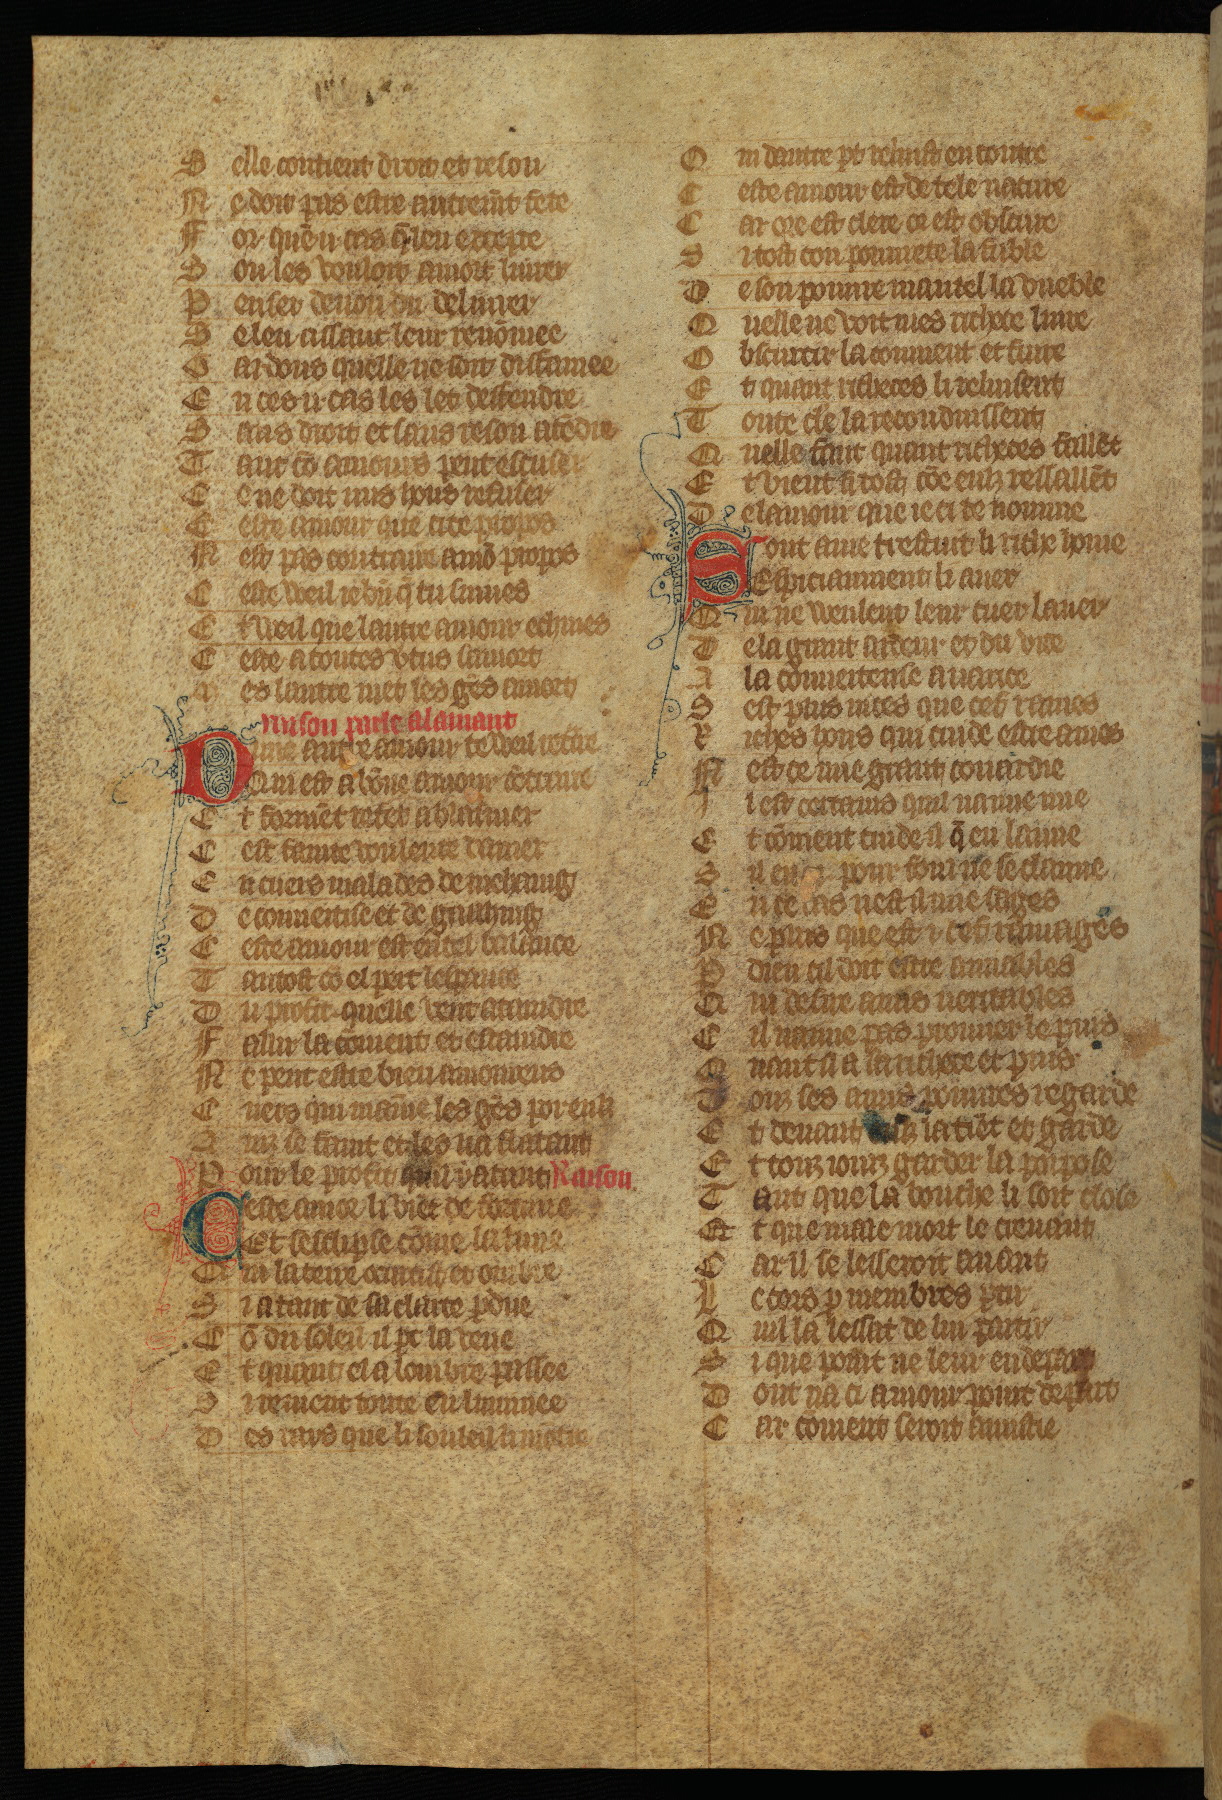 S elle contient droit et reson
N e doit pas estre autremt fete
F or quē ıı cas q̄ len excepte
S on les vouloit a mort livrer
P enser devon du delivrer
S e len assaut leur renōmee
G ardons quelle ne soit diffamee
E n ces ıı cas les let deffendre
S ans droit et sans reson atēdre
T ant cō amours peut escuser
C e ne doit nus hons refuser
C este amour que ci te propos
N est pas contraire a mō propos
C este veil ie bn̄ q̄ tu sinues
E t veil que lautre amour eschives
C este a toutes vtus samort
M es lautre met les gēs a mort
Raison parle alamant
D une autre amour te veil retrere
Q ui est a bōne amour cōtraire
E t formēt refet a blasmer
C est fainte voulente damer
E n cuers malades de mehaing
D e couvertise et de gaaing
C este amour est en tel balance
T antost cō el pert lesperance
D u profit quelle veut ataindre
F alir la cōvient et estaindre
N e peut estre bien amoureus
C uers qui naime les gēs por euls
A inz se faint et les va flatant
P our le profit quil y atant Raison
C este amor si viēt de fortune
Et sesclipse cōme la lune
Q ui la terre obnubist et ombre
S i a tant de sa clarte pdue
C ō du soleil il pt la veue
E t quant el a lombre passee
S i revient toute enluminee
D es rays que li soulell li mōstre
Q ui dautre pt reluist en contre
C este amour est de tele nature
C ar ore est clere or est obscure
S i tost con povrete la fuble
D e son povure mantel la dueble
Q uelle ne voit mes richece luire
O bscurcir la convient et fuire
E t quant richeces li reluisent
T oute cle la reconduissent
Q uelle faut quant richeces faillēt
E t vient si tost cōe eulz ressaillēt
D e lamour que ie ci te nomme
S ont ame trestuit li riche home
Especiaument li aver
Q ui ne veulent leur cuer laver
D e la grant ardeur et du vice
A la convoiteuse avarice
S est plus nices que cers ramés
R iches hons qui cuide estre amés
N est ce mie grant couardie
I l est certains quil naime mie
E t cōment cuide il q̄ en laime
S il en ce pour foul ne se claime
E n ce cas nest il mie sages
N e plus que est ı cers ramages
P dieu cil doit estre amiables
Q ui desire amis veritables
C il naime pas prouver le puis
Q uant il a sa richece et puis
T ouz ses amis povures regarde
E t devant eulz la tiēt et garde
E t touz iourz garder la propose
T ant que la bouche li soit close
E t que male mort le crevant
C ar il se lesseroit avant
L e cors p membres ptir
Q uil la lessat de lui partir
S i que point ne leur en depart
D ont na ci amour point de part
C ar cōment seroit amistie